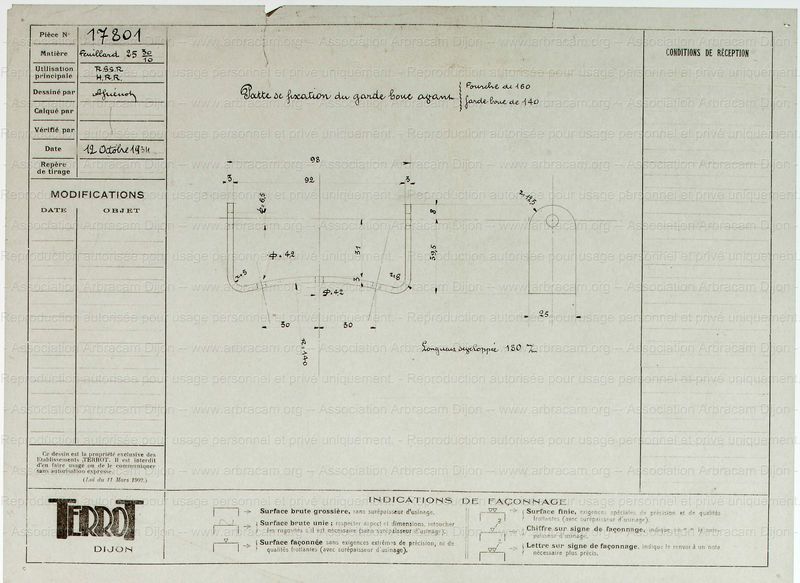 Pièce N° 17801
Matière Feuillard 25 30/10
Utilisation principale R.S.S.R.
H.R.R.
Dessiné par
Calqué par
Vérifié par
Date 12 Octobre 1934
Repère de tirage
MODIFICATIONS
DATE OBJET
CONDITIONS DE RÉCEPTION
Patte de fixation du garde boue avant
Fourche de 160
Garde boue de 140
98
3 92 3
8
51
59,5
3
30 30
R=140
25
Longueur développée 180
Ce dessin est la propriété exclusive des
Etablissements TERROT. Il est interdit
d'en faire usage ou de le communiquer
sans autorisation expresse.
(Loi du 11 Mars 1902.)
TERROT
DIJON
INDICATIONS DE FAÇONNAGE
Surface brute grossière, sans surépaisseur d'usinage.
Surface brute unie ; respecter aspect et dimensions, retoucher
les raccords s'il est nécessaire (sans surépaisseur d'usinage).
Surface façonnée sans exigences extrêmes de précision, ni de
qualités frottantes (avec surépaisseur d'usinage).
Surface finie, exigences spéciales de précision et de qualités
frottantes (avec surépaisseur d'usinage).
Chiffre sur signe de façonnage, indique
d'usinage.
Lettre sur signe de façonnage, indique le renvoi à une note
nécessaire plus précis.
www.arbracam.org -- Association Arbracam Dijon -- www.arbracam.org -- Association Arbracam Dijon
Reproduction autorisée pour usage personnel et privé uniquement.